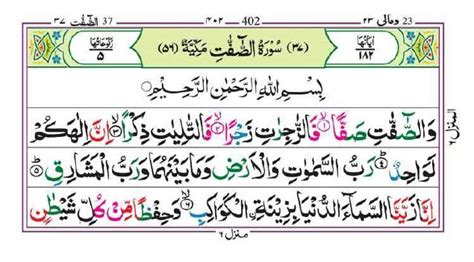 الصّٰفّٰت ٣٧ 37 ٤٠٢ 402 ومالی ٢٣ 23
رکوعاتها ٥ (٣٧) سُوْرَةُ الصّٰٓفّٰتِ مَكِّيَّةٌ (٥٦) اٰیاتها ١٨٢
بِسْمِ اللّٰهِ الرَّحْمٰنِ الرَّحِيْمِ
وَالصّٰٓفّٰتِ صَفًّا ۙ١ فَالزّٰجِرٰتِ زَجْرًا ۙ٢ فَالتّٰلِيٰتِ ذِكْرًا ۙ٣ اِنَّ اِلٰهَكُمْ
لَوَاحِدٌ ؕ٤ رَبُّ السَّمٰوٰتِ وَالْاَرْضِ وَمَا بَيْنَهُمَا وَرَبُّ الْمَشَارِقِ ؕ٥
اِنَّا زَيَّنَّا السَّمَآءَ الدُّنْيَا بِزِيْنَةِ ۨالْكَوَاكِبِ ۙ٦ وَحِفْظًا مِّنْ كُلِّ شَيْطٰنٍ
المنزل ٦
منزل ٦